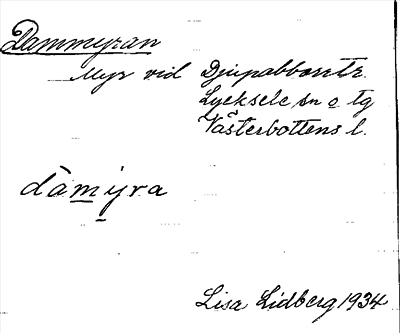 Dammyran
Myr vid Djupabborrtr.
Lycksele sn o tg
Västerbottens l.
dàmyra
Lisa Lidberg 1934